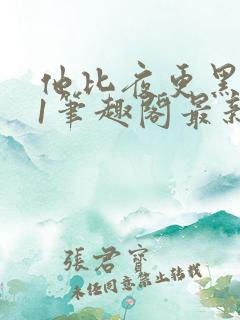 他比夜更黑
1笔趣阁最新
張君寶
未经同意禁止转载